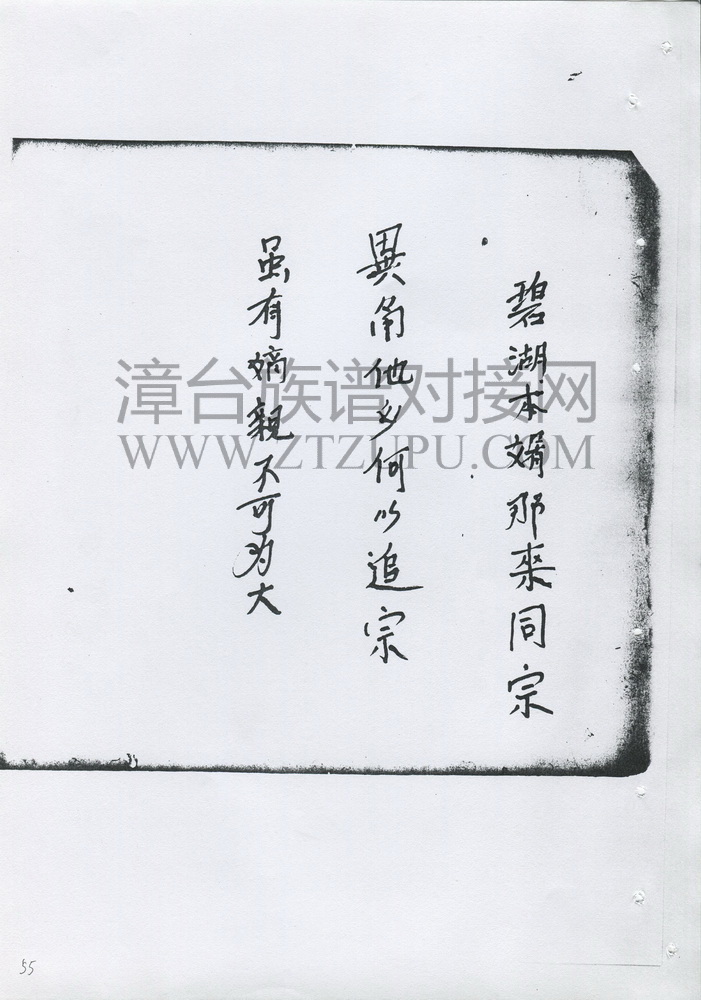 碧湖本婿那來同宗
異角他乡何以追宗
虽有嫡親不可为大
漳台族谱对接网
WWW.ZTZUPU.COM
55